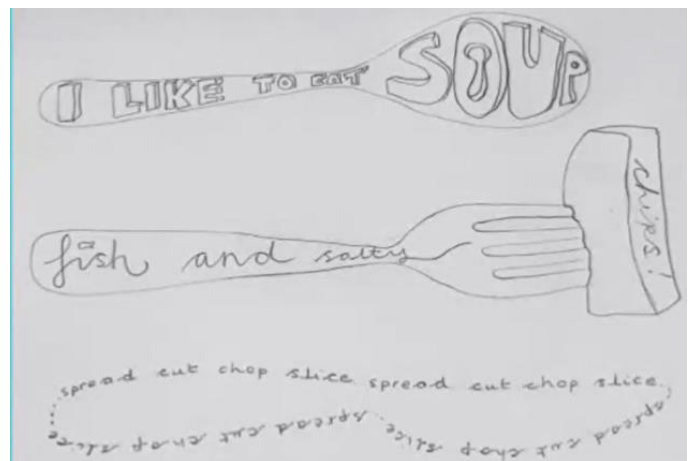 I LIKE TO EAT SOUP
fish and salty chips!
spread cut chop slice spread cut chop slice
spread cut chop slice spread cut chop slice